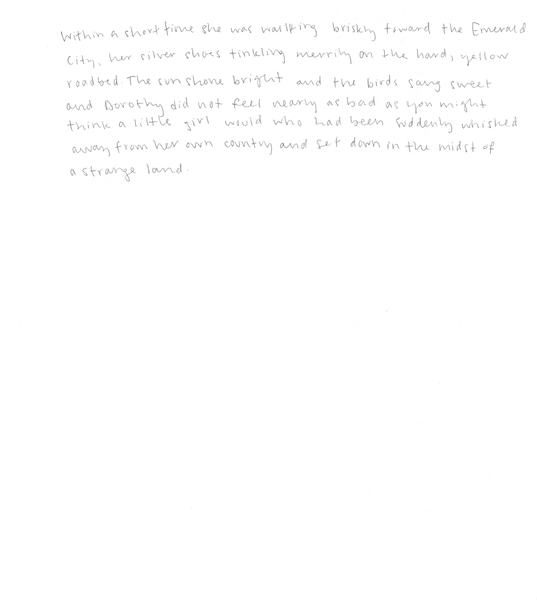 Within a short time she was walking briskly toward the Emerald
City, her silver shoes tinkling merrily on the hard, yellow
roadbed. The sun shone bright and the birds sang sweet
and Dorothy did not feel nearly as bad as you might
think a little girl would who had been suddenly whished
away from her own country and set down in the midst of
a strange land.